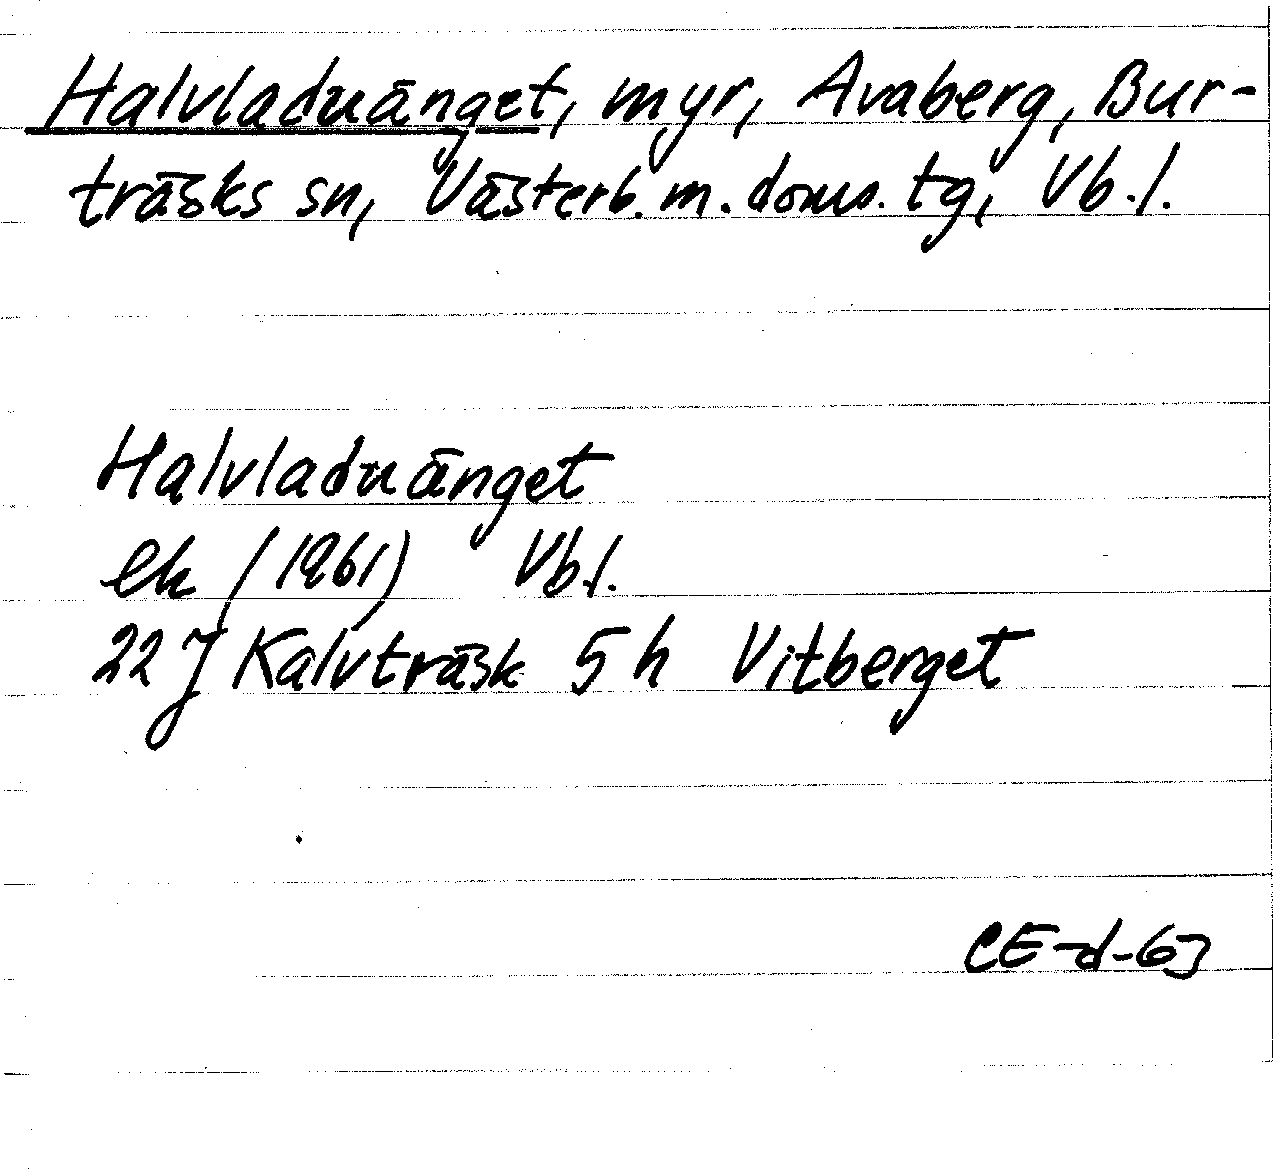 Halvladuänget, myr, Avaberg, Bur-
träsks sn, Västerb. m. doms. tg, Vb.l.
Halvladuänget
ek (1961) Vb.l.
22 J Kalvträsk 5 h Vitberget
CE-d-63